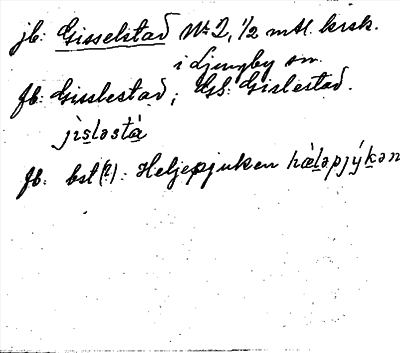 jb: Gisselstad № 2, 1/2 mtl. krsk.
i Ljungby sn.
fb: Gisslestad; GS: Gislestad.
jìsləstá
fb: bst(?): Heljepjuken hæ̀ləpjýkən